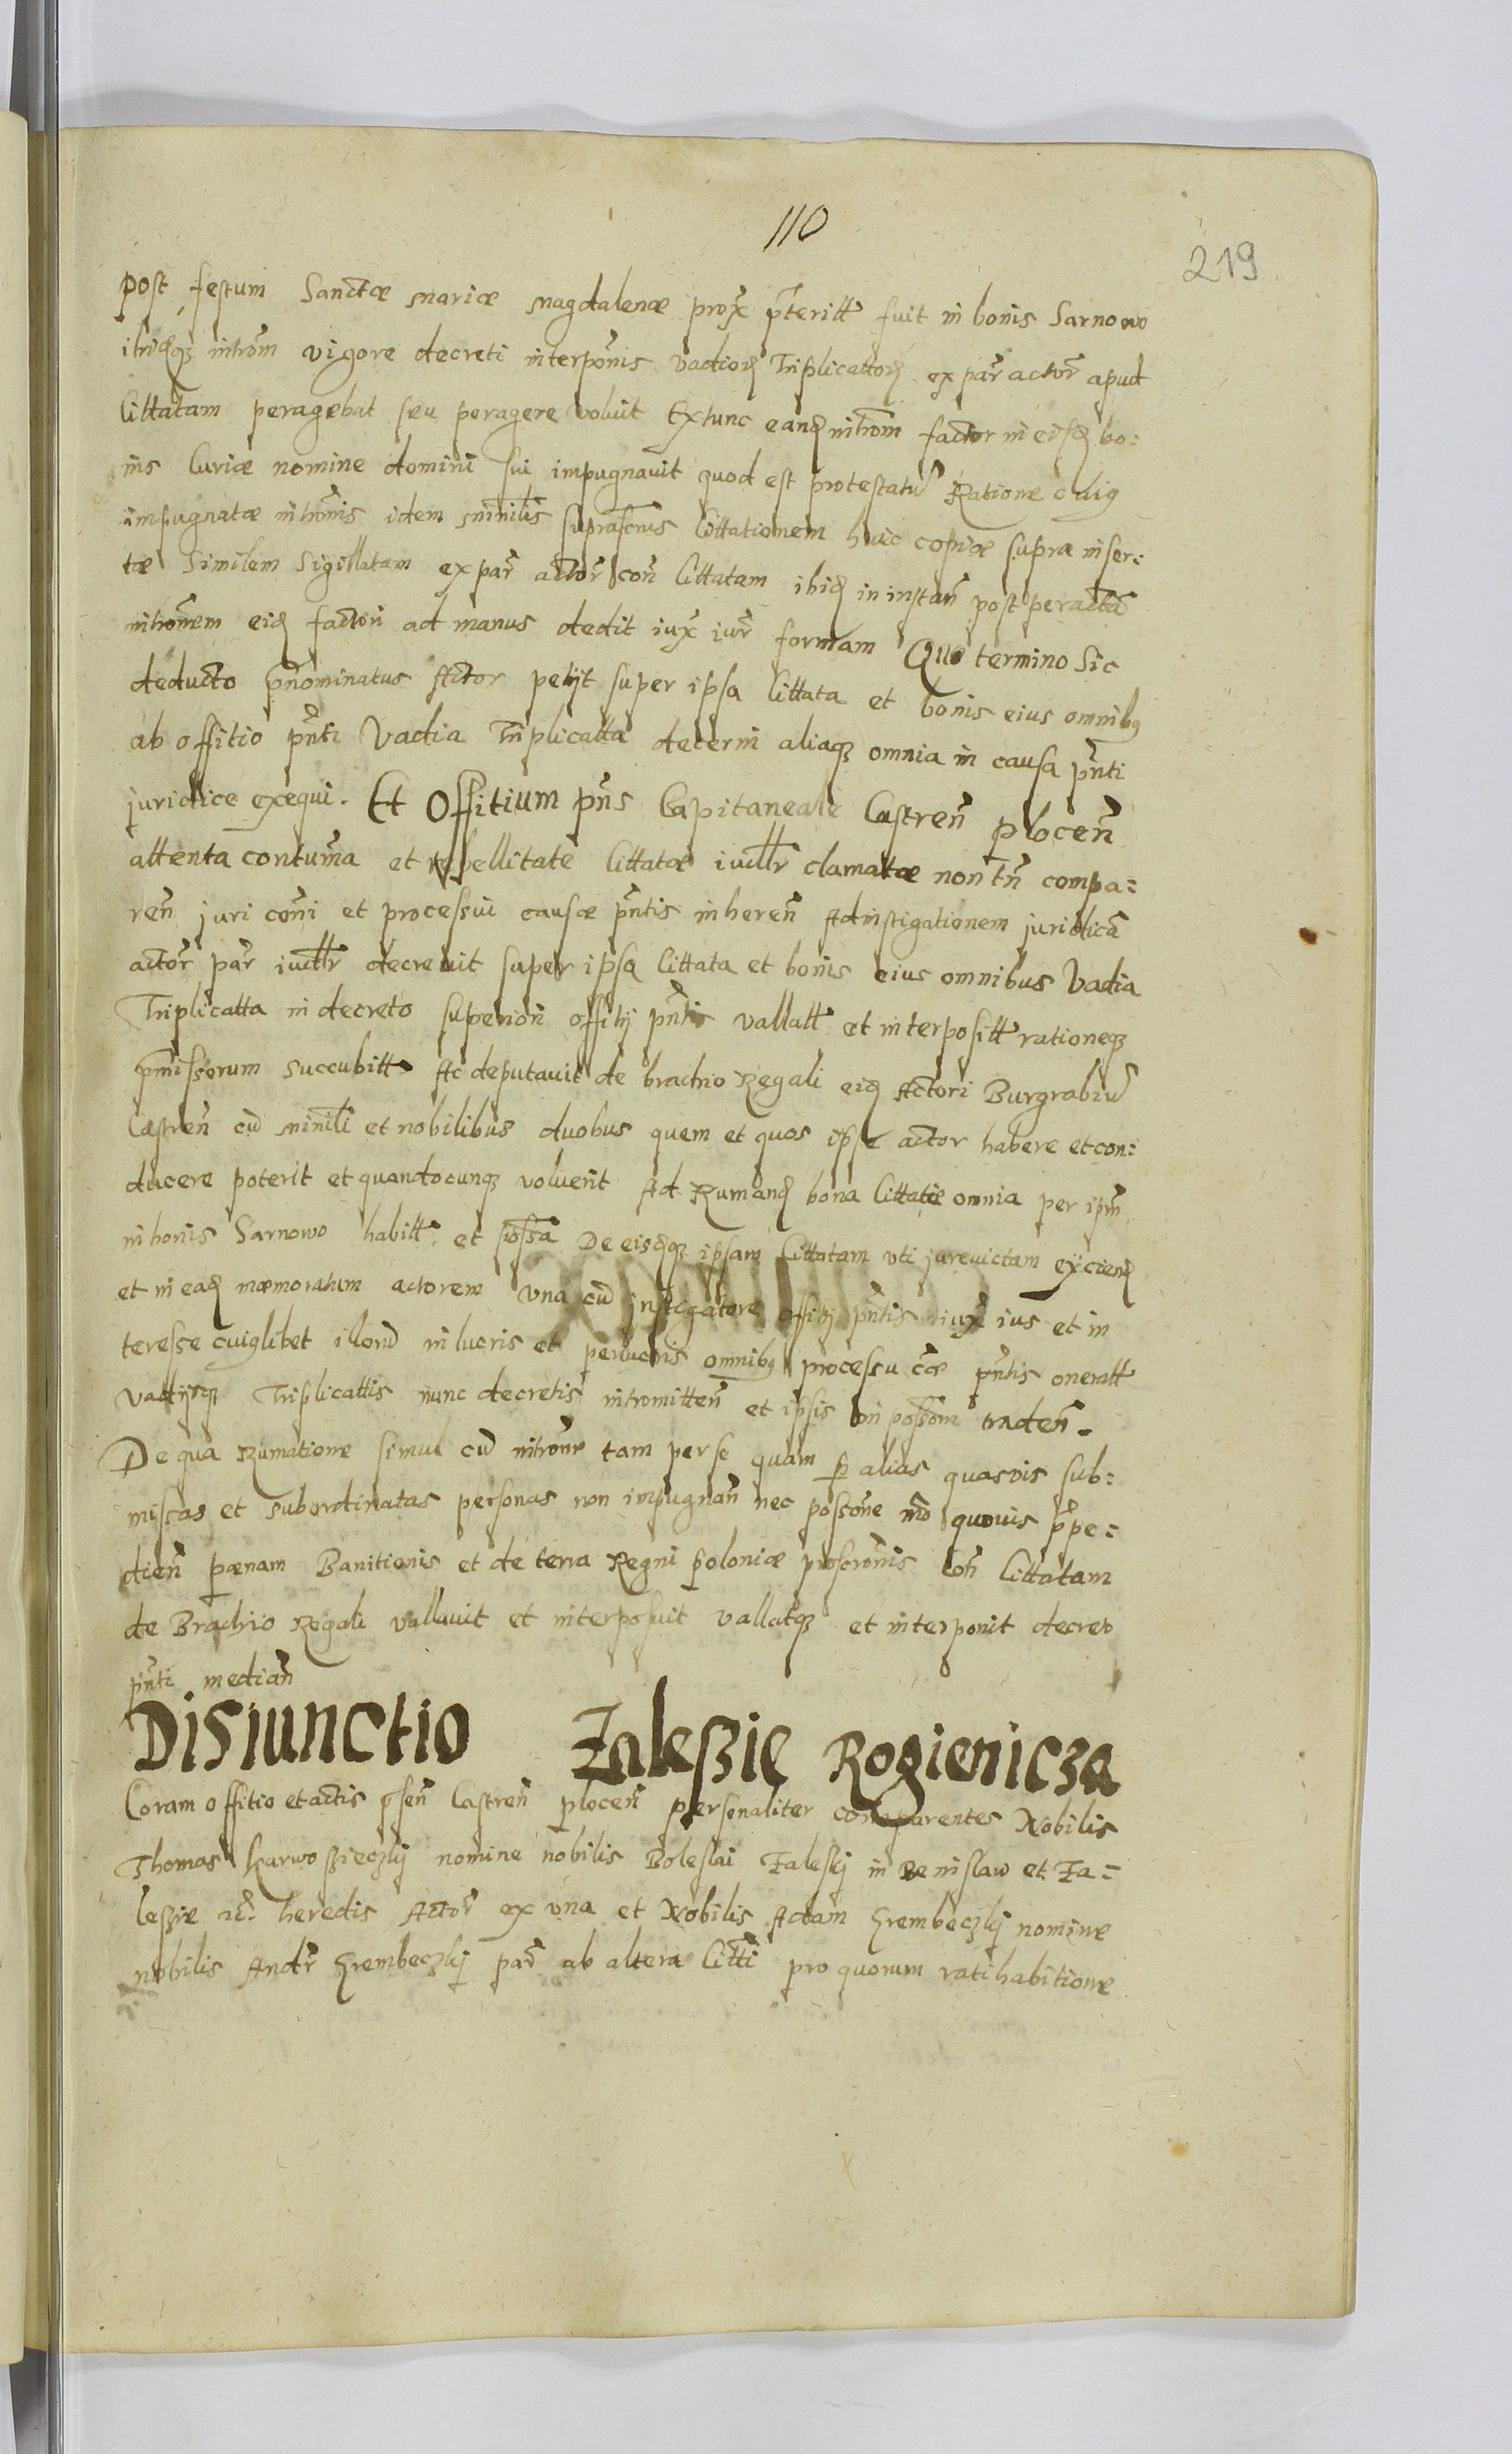 110
219
post festum Sanctæ Mariæ Magdalenæ prox p̃teritt fuit in bonis Sarnowo
ibidqz introm vigore decreti interponis vadior Triplicattor ex par actor apud
Cittatam peragebat seu peragere voluit Extunc eand introm factor in eisd bo:
nis Curiæ nomine domini sui impugnauit quod est protestatu Ratione cuig
impugnatæ intronis idem minilis suprascrus Cittationem huic copiæ supra inser:
tæ Similem Sigillatam ex par actor con Cittatam ibid in instan post peracta
intronem eid factori ad manus dedit iux iur formam Quo termino Sic
deducto p̃nominatus Actor petijt super ipsa Cittata et bonis eius omnibq
ab offitio p̃nti Vadia Triplicatta decerni aliaqz omnia in causa p̃nti
juridice exequi. Et Offitium p̃ns Capitaneale Castren plocen
attenta contuma et rebellitate Cittatæ iudllr clamatæ non tn compa=
ren juri coni et processui causæ p̃ntis inheren Ad instigationem juridica
actor par iudllr decreuit super ipsa Cittata et bonis eius omnibus Vadia
Triplicatta in decreto superiori offitij p̃ntis vallatt et interpositt rationeqz
p̃missorum succubitt Ac deputauit de brachio Regali eid Actori Burgrabiu
Castren cu minili et nobilibus duobus quem et quos ipse actor habere et con:
ducere poterit et quandocunqz voluerit Ad Rumand bona Cittatæ omnia per ipm
in bonis Sarnowo habitt et sossa De eisdqz ipsam Cittatam vti jureuictam eijciend
et in ead mæmoratum actorem vna cu instigatore offitij p̃ntis iux ius et in
teresse cuiglibet iloru in lucris et perlucris omnibq processu cæ p̃ntis oneratt
vadijsqz Triplicattis nunc decretis intromitten et ipsis in possom traden.
De qua Rumatione simul cu introne tam per se quam p alias quasvis sub:
missas et subordinatas personas non impugnan nec possone mo quouis p̃pe=
dien pænam Banitionis et de terra Regni poloniæ proscronis con Cittatam
de Brachio Regali vallauit et interposuit vallatqz et interponit decreto
p̃nti median
Disiunctio Zaleßie Rogienicza
Coram offitio et actis p̃sen Castren plocen personaliter comparentes Nobilis
Thomas Karwoßieczkij nomine nobilis Boleslai Zaleskij in Benislaw et Za=
leßie etc. heredis Actor ex vna et Nobilis Adam Grembeczkij nomine
nobilis Andr Grembeczkij par ab altera Citti pro quorum ratihabitione